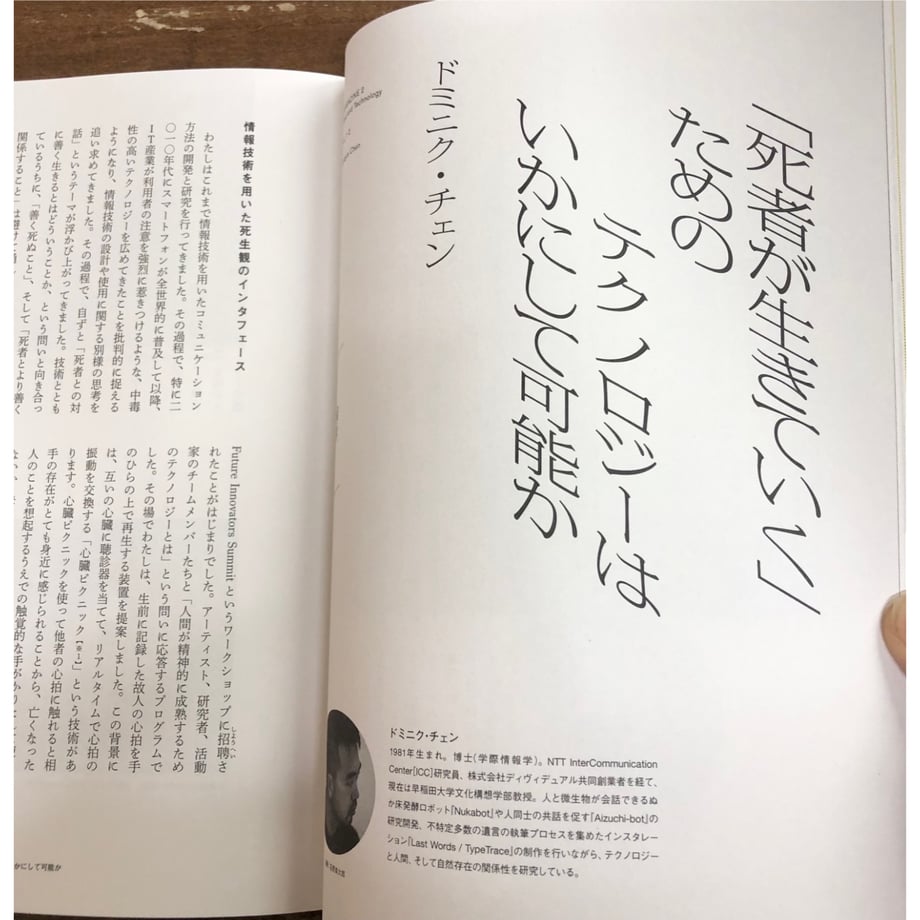 「死者が生きていく」
ための
テクノロジーは
いかにして可能か
ドミニク・チェン
Technology
Chen
ドミニク・チェン
1981年生まれ。博士(学際情報学)。NTT InterCommunication
Center[ICC]研究員、株式会社ディヴィデュアル共同創業者を経て、
現在は早稲田大学文化構想学部教授。人と微生物が会話できるぬ
か床発酵ロボット『Nukabot』や人同士の共話を促す『Aizuchi-bot』の
研究開発、不特定多数の遺言の執筆プロセスを集めたインスタレー
ション『Last Words / TypeTrace』の制作を行いながら、テクノロジー
と人間、そして自然存在の関係性を研究している。
情報技術を用いた死生観のインタフェース
わたしはこれまで情報技術を用いたコミュニケーション
方法の開発と研究を行ってきました。その過程で、特に二
〇一〇年代にスマートフォンが全世界的に普及して以降、
IT産業が利用者の注意を強烈に惹きつけるような、中毒
性の高いテクノロジーを広めてきたことを批判的に捉える
ようになり、情報技術の設計や使用に関する別様の思考を
追い求めてきました。その過程で、自ずと「死者との対
話」というテーマが浮かび上がってきました。技術ととも
に善く生きるとはどういうことか、という問いと向き合っ
ているうちに、「善く死ぬこと」、そして「死者とより善く
関係すること」は避けて
Future Innovators Summit というワークショップに招聘さ
れたことがはじまりでした。アーティスト、研究者、活動
家のチームメンバーたちと「人間が精神的に成熟するため
のテクノロジーとは」という問いに応答するプログラムで
した。その場でわたしは、生前に記録した故人の心拍を手
のひらの上で再生する装置を提案しました。この背景に
は、互いの心臓に聴診器を当てて、リアルタイムで心拍の
振動を交換する「心臓ピクニック【※1】」という技術があ
ります。心臓ピクニックを使って他者の心拍に触れると相
手の存在がとても身近に感じられることから、亡くなった
人のことを想起するうえでの触覚的な手がかりとして
かにして可能か